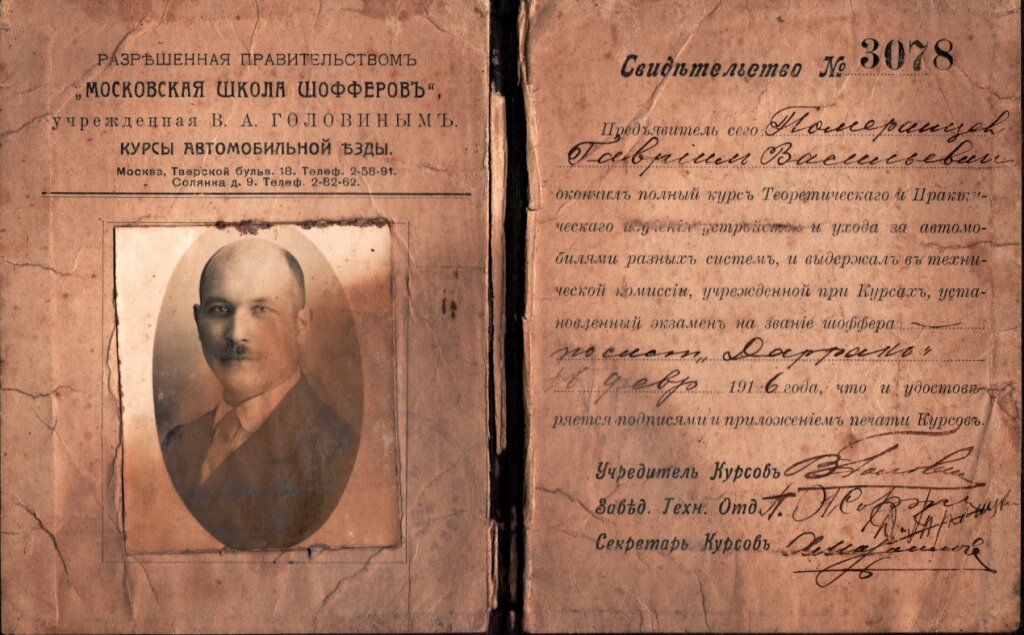 РАЗРѢШЕННАЯ ПРАВИТЕЛЬСТВОМЪ
„МОСКОВСКАЯ ШКОЛА ШОФФЕРОВЪ“,
учрежденная В. А. ГОЛОВИНЫМЪ.
КУРСЫ АВТОМОБИЛЬНОЙ ѢЗДЫ.
Москва, Тверской бульв. 18. Телеф. 2-58-91.
Солянка д. 9. Телеф. 2-82-62.
Свидѣтельство № 3078
Предъявитель сего Померанцев
Гавріил Васильевич
окончилъ полный курсъ Теоретическаго и Практи-
ческаго изученія устройства и ухода за автомо-
билями разныхъ системъ, и выдержалъ въ техни-
ческой комиссіи, учрежденной при Курсахъ, уста-
новленный экзаменъ на званіе шоффера
по сист „Даррак“
16 февр 1916 года, что и удостовѣ-
ряется подписями и приложеніемъ печати Курсовъ.
Учредитель Курсовъ В Головин
Завѣд. Техн. Отд.
Секретарь Курсовъ